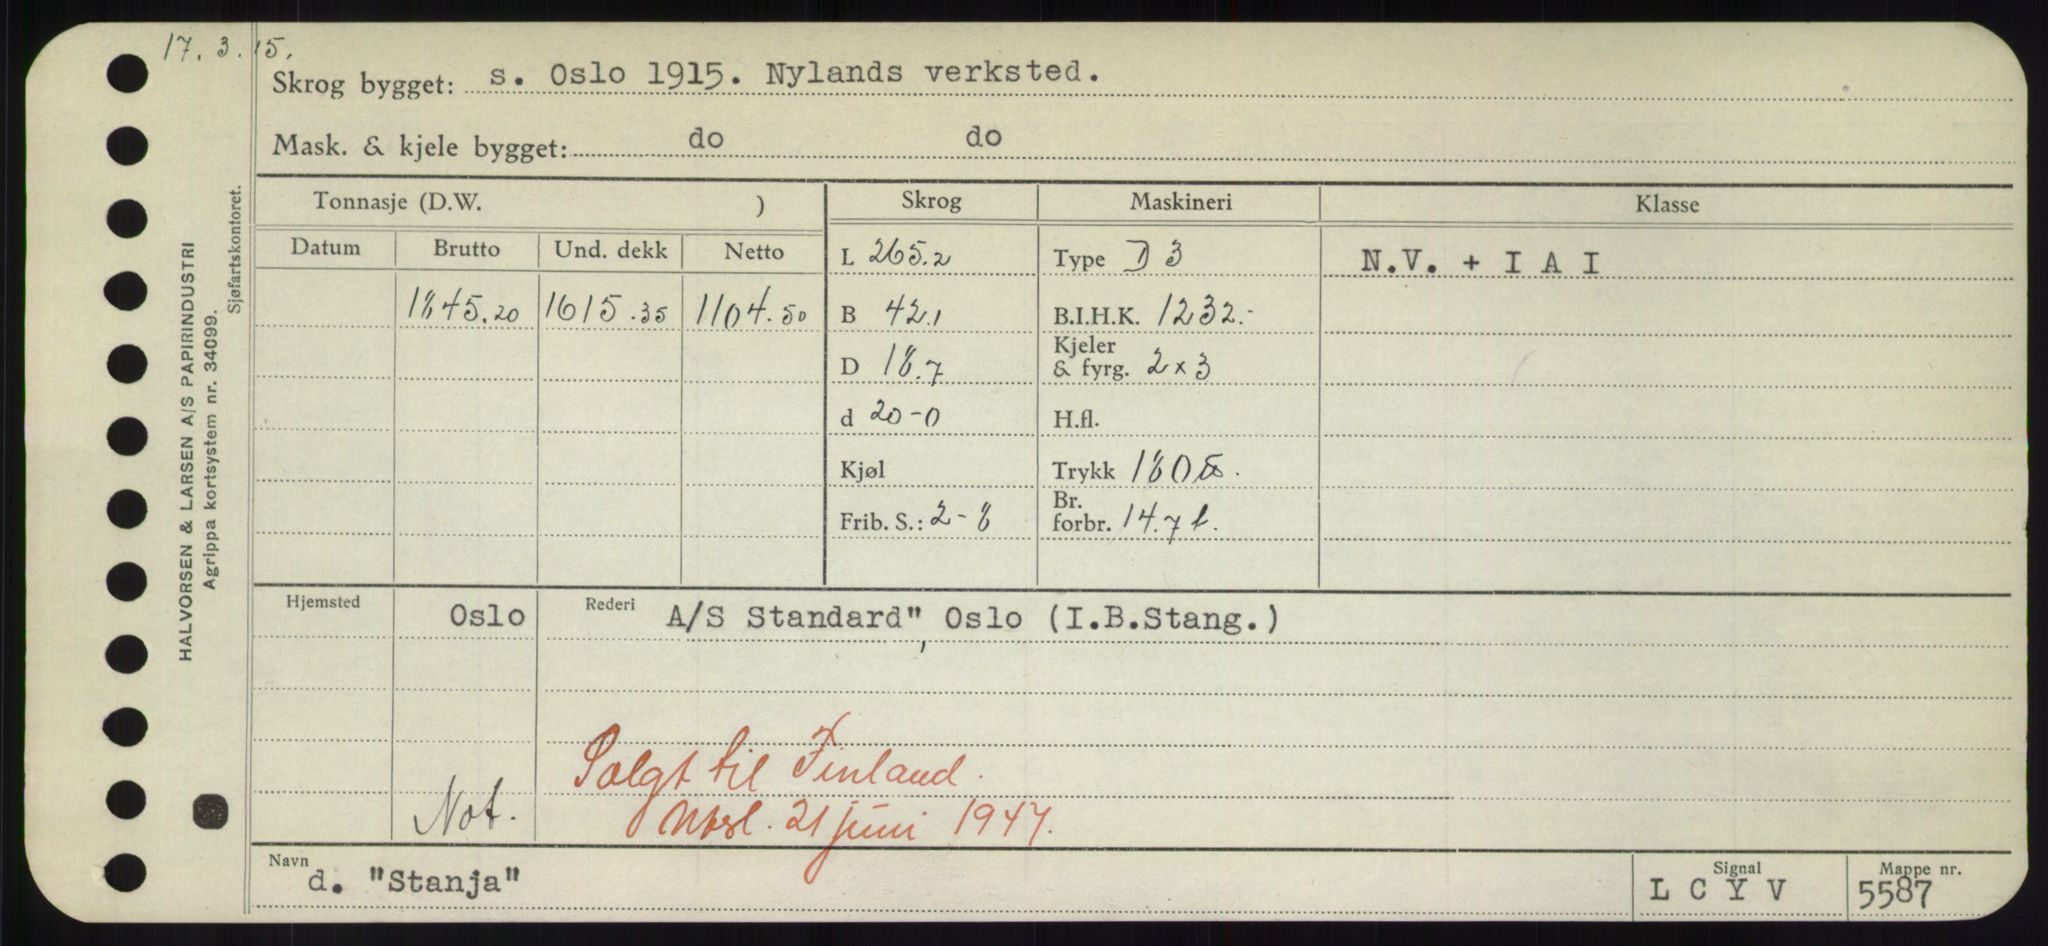 17. 3. 15.
Skrog bygget: s. Oslo 1915. Nylands verksted.
Mask. & kjele bygget: do do
Tonnasje (D.W. ) Skrog Maskineri Klasse
Datum Brutto Und. dekk Netto L 265.2 Type D 3 N.V. + I A I
1845.20 1615.35 1104.50 B 42.1 B.I.H.K. 1232.-
D 18.7 Kjeler & fyrg. 2 x 3
d 20-0 H.fl.
Kjøl Trykk 180
Frib. S.: 2-8 Br. forbr. 14.7 t.
Hjemsted Oslo Rederi A/S Standard", Oslo (I.B.Stang.)
Solgt til Finland.
Not. 21 juni 1947.
Navn d. "Stanja" Signal L C Y V Mappe nr. 5587
HALVORSEN & LARSEN A/S PAPIRINDUSTRI
Agrippa kortsystem nr. 34099.
Sjøfartskontoret.